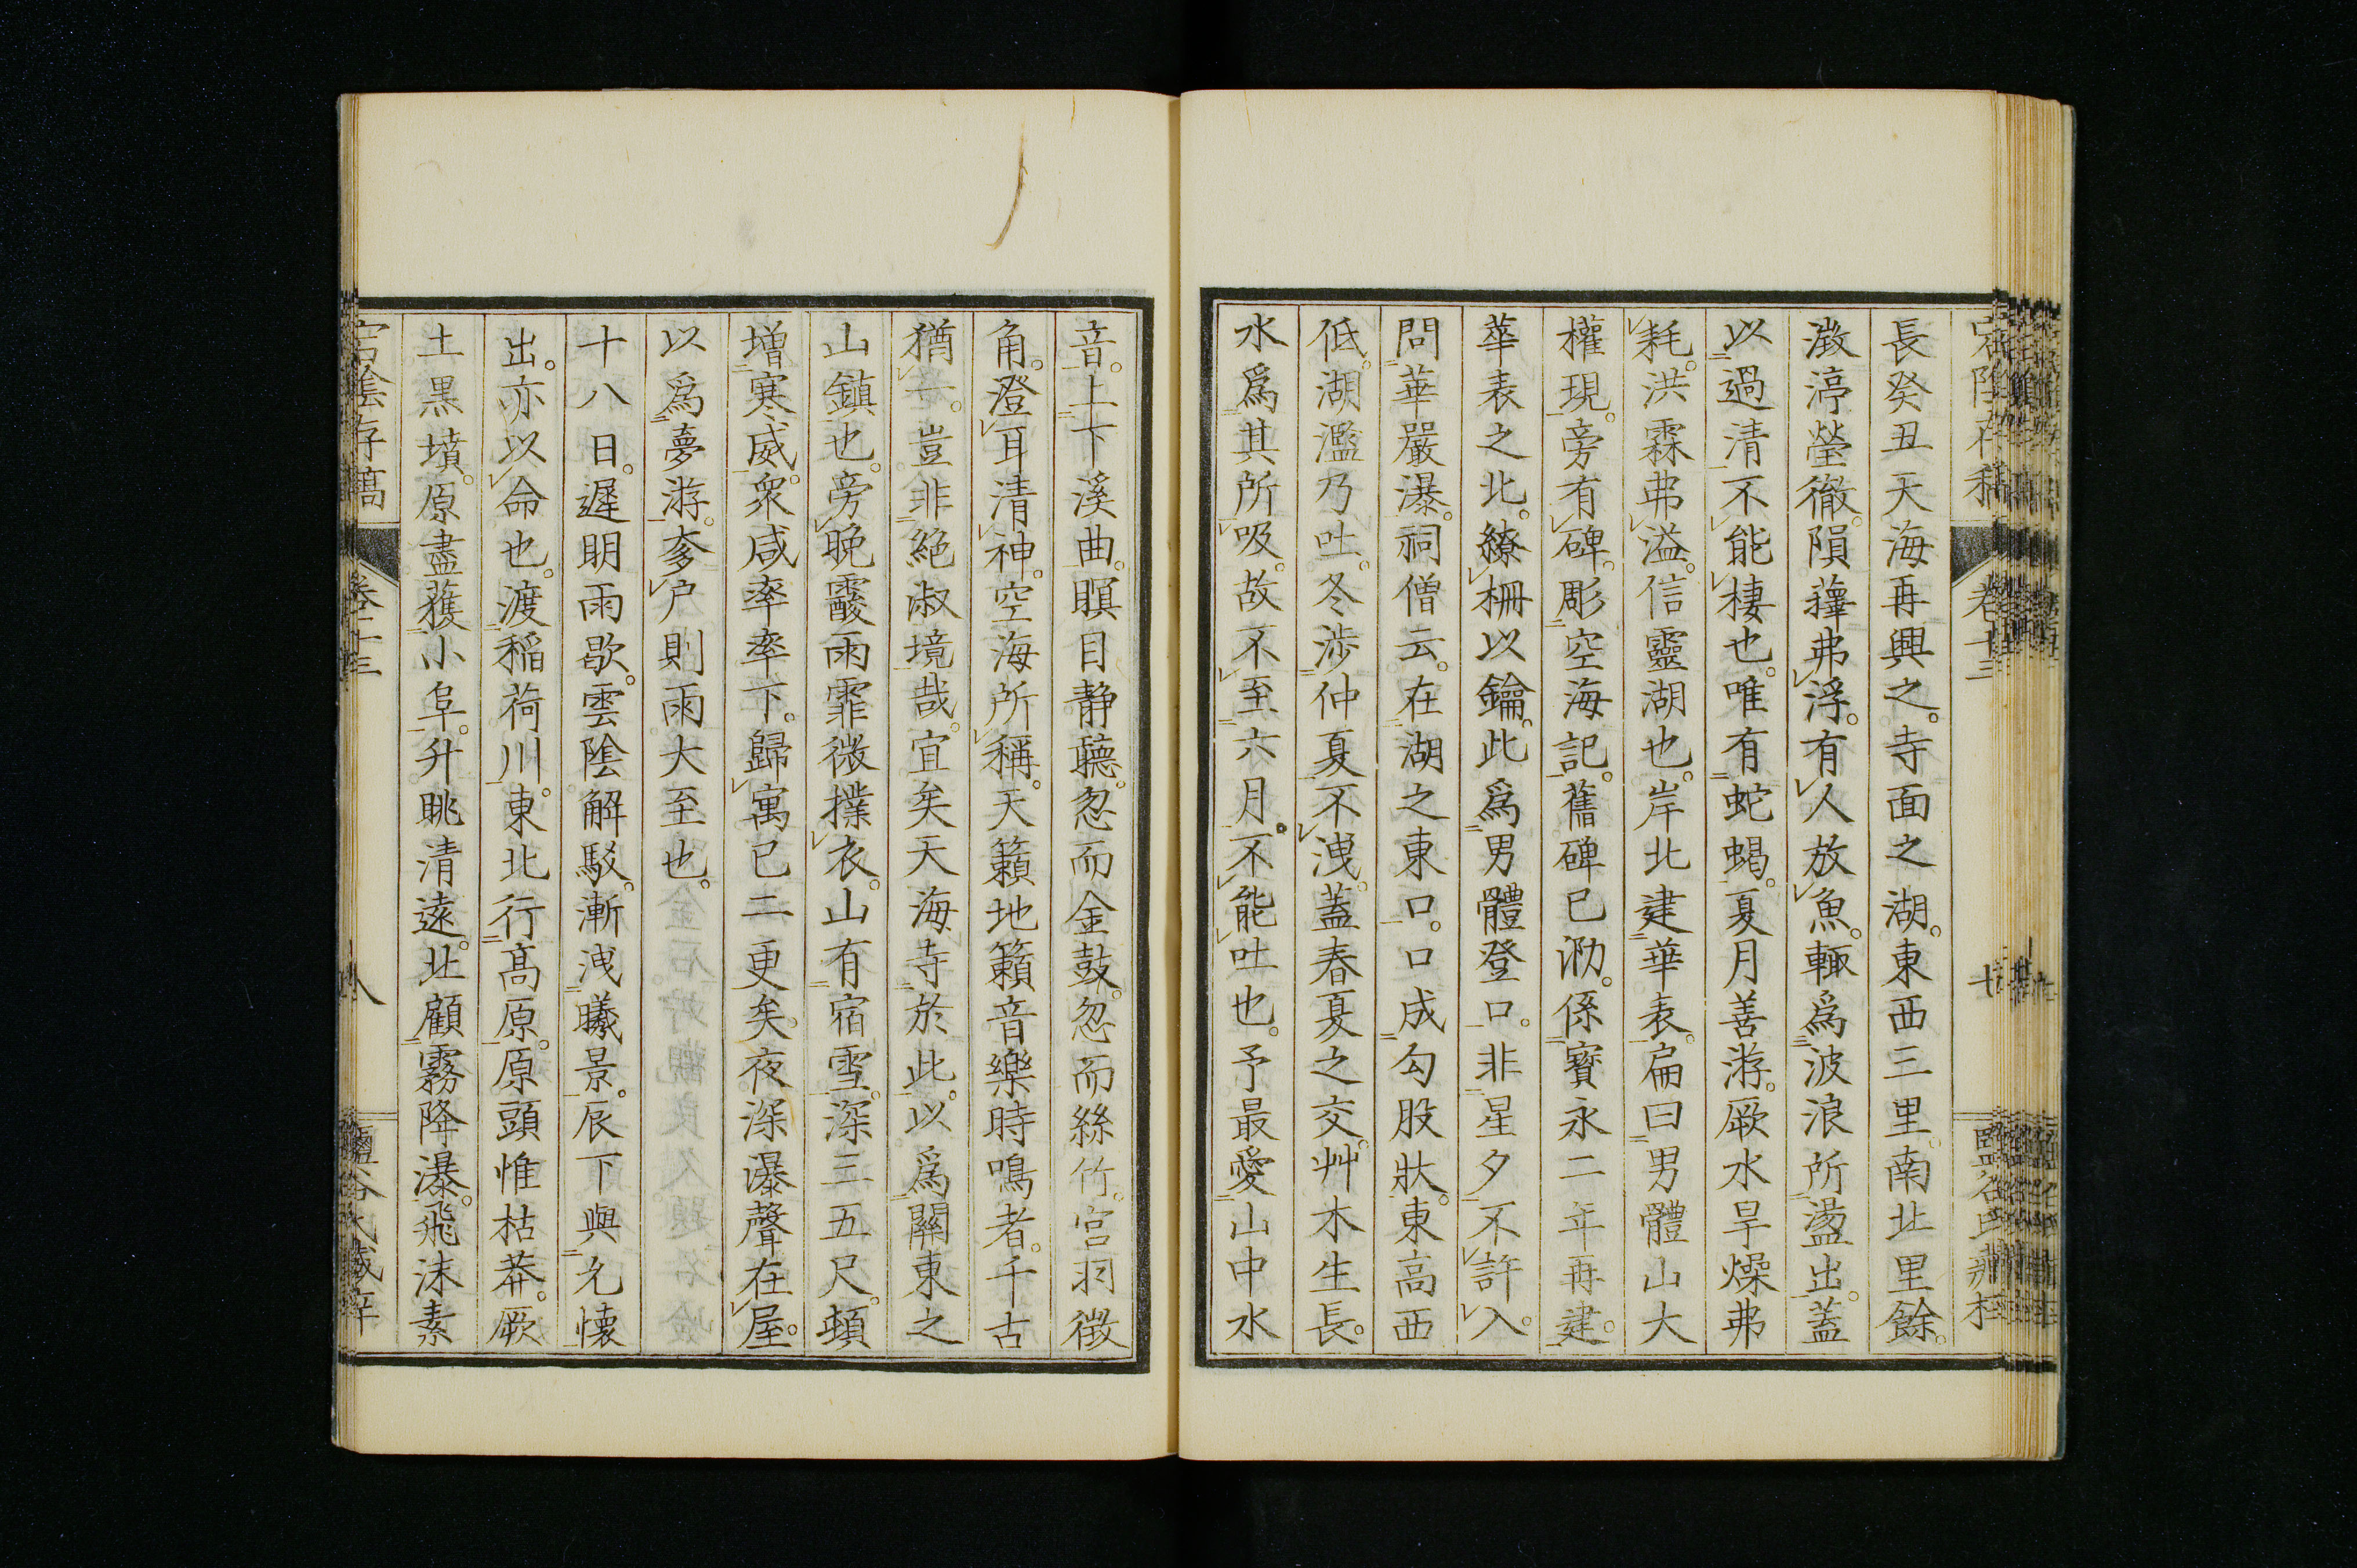 長癸丑天海再興之。寺面之湖。東西三里。南北里餘。
澂渟瑩徹。隕蘀弗浮。有人放魚。輙爲波浪所盪出。蓋
以過清不能棲也。唯有蛇蝎。夏月善游。厥水旱燥弗
耗。洪霖弗溢。信靈湖也。岸北建華表。扁曰男體山大
權現。旁有碑。彫空海記。舊碑已泐。係寳永二年再建。
華表之北。繚柵以鑰。此爲男體登口。非星夕不許入。
問華嚴瀑。祠僧云。在湖之東口。口成勾股狀。東高西
低。湖濫乃吐。冬渉仲夏不洩。蓋春夏之交。艸木生長。
水爲其所吸。故不至六月。不能吐也。予最愛山中水
音。上下溪曲。瞑目静聽。忽而金鼓。忽而絲竹。宮羽徴
角。澄耳清神。空海所稱。天籟地籟音樂時鳴者。千古
猶一。豈非絶淑境哉。宜矣天海寺於此。以爲關東之
山鎮也。旁晩霰雨霏微撲衣。山有宿雪。深三五尺。頓
増寒威。衆咸率率下。歸寓已二更矣。夜深瀑聲在屋。
以爲夢游。奓戸則雨大至也。
十八日。遲明雨歇。雲陰解駁。漸洩曦景。辰下與允懐
出。亦以命也。渡稲荷川。東北行高原。原頭惟枯莽。厥
土黒墳。原盡獲小阜。升眺清遠。北顧霧降瀑。飛沫素
卷十三
八
卷十三
七